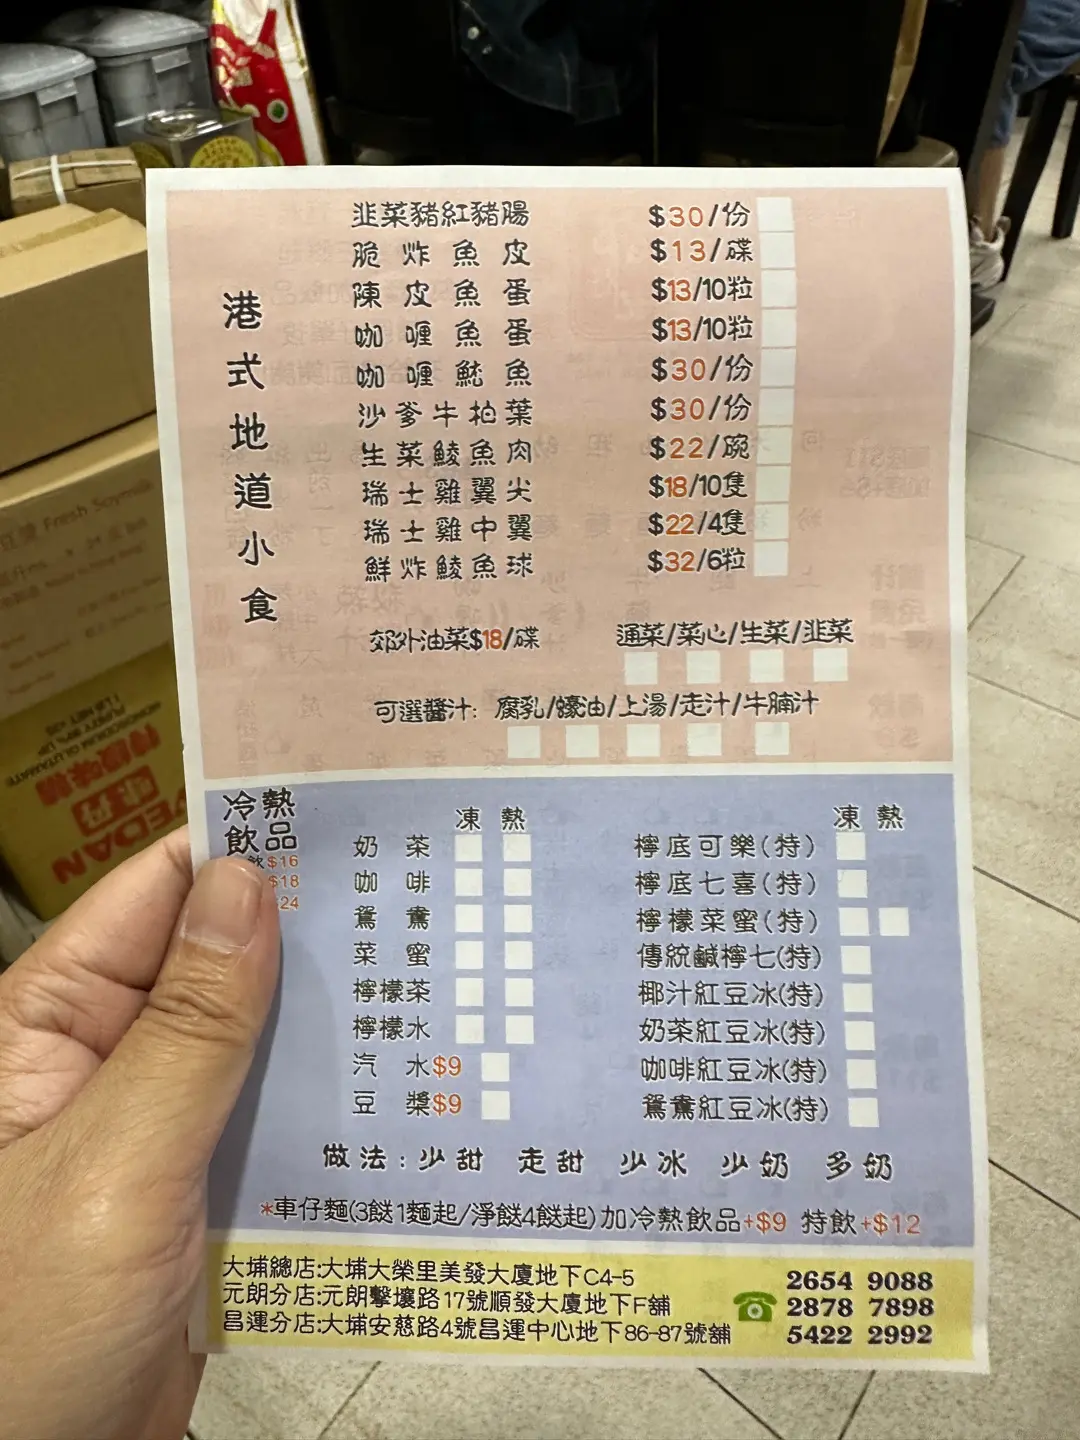 港式地道小食
韮菜豬紅豬腸 $30/份
脆炸魚皮 $13/碟
陳皮魚蛋 $13/10粒
咖喱魚蛋 $13/10粒
咖喱魷魚 $30/份
沙爹牛柏葉 $30/份
生菜鯪魚肉 $22/碗
瑞士雞翼尖 $18/10隻
瑞士雞中翼 $22/4隻
鮮炸鯪魚球 $32/6粒
郊外油菜$18/碟 通菜/菜心/生菜/韮菜
可選醬汁: 腐乳/蠔油/上湯/走汁/牛腩汁
冷熱
飲品
飲$16
$18
24
凍 熱
奶茶
咖啡
鴛鴦
菜蜜
檸檬茶
檸檬水
汽水$9
豆漿$9
凍 熱
檸底可樂(特)
檸底七喜(特)
檸檬菜蜜(特)
傳統鹹檸七(特)
椰汁紅豆冰(特)
奶茶紅豆冰(特)
咖啡紅豆冰(特)
鴛鴦紅豆冰(特)
做法:少甜 走甜 少冰 少奶 多奶
*車仔麵(3餸1麵起/淨餸4餸起)加冷熱飲品+$9 特飲+$12
大埔總店:大埔大榮里美發大廈地下C4-5 2654 9088
元朗分店:元朗擊壤路17號順發大廈地下F舖 2878 7898
昌運分店:大埔安慈路4號昌運中心地下86-87號舖 5422 2992
Fresh Soymilk
VEDAN
味精
MONOSODIUM GLUTAMATE